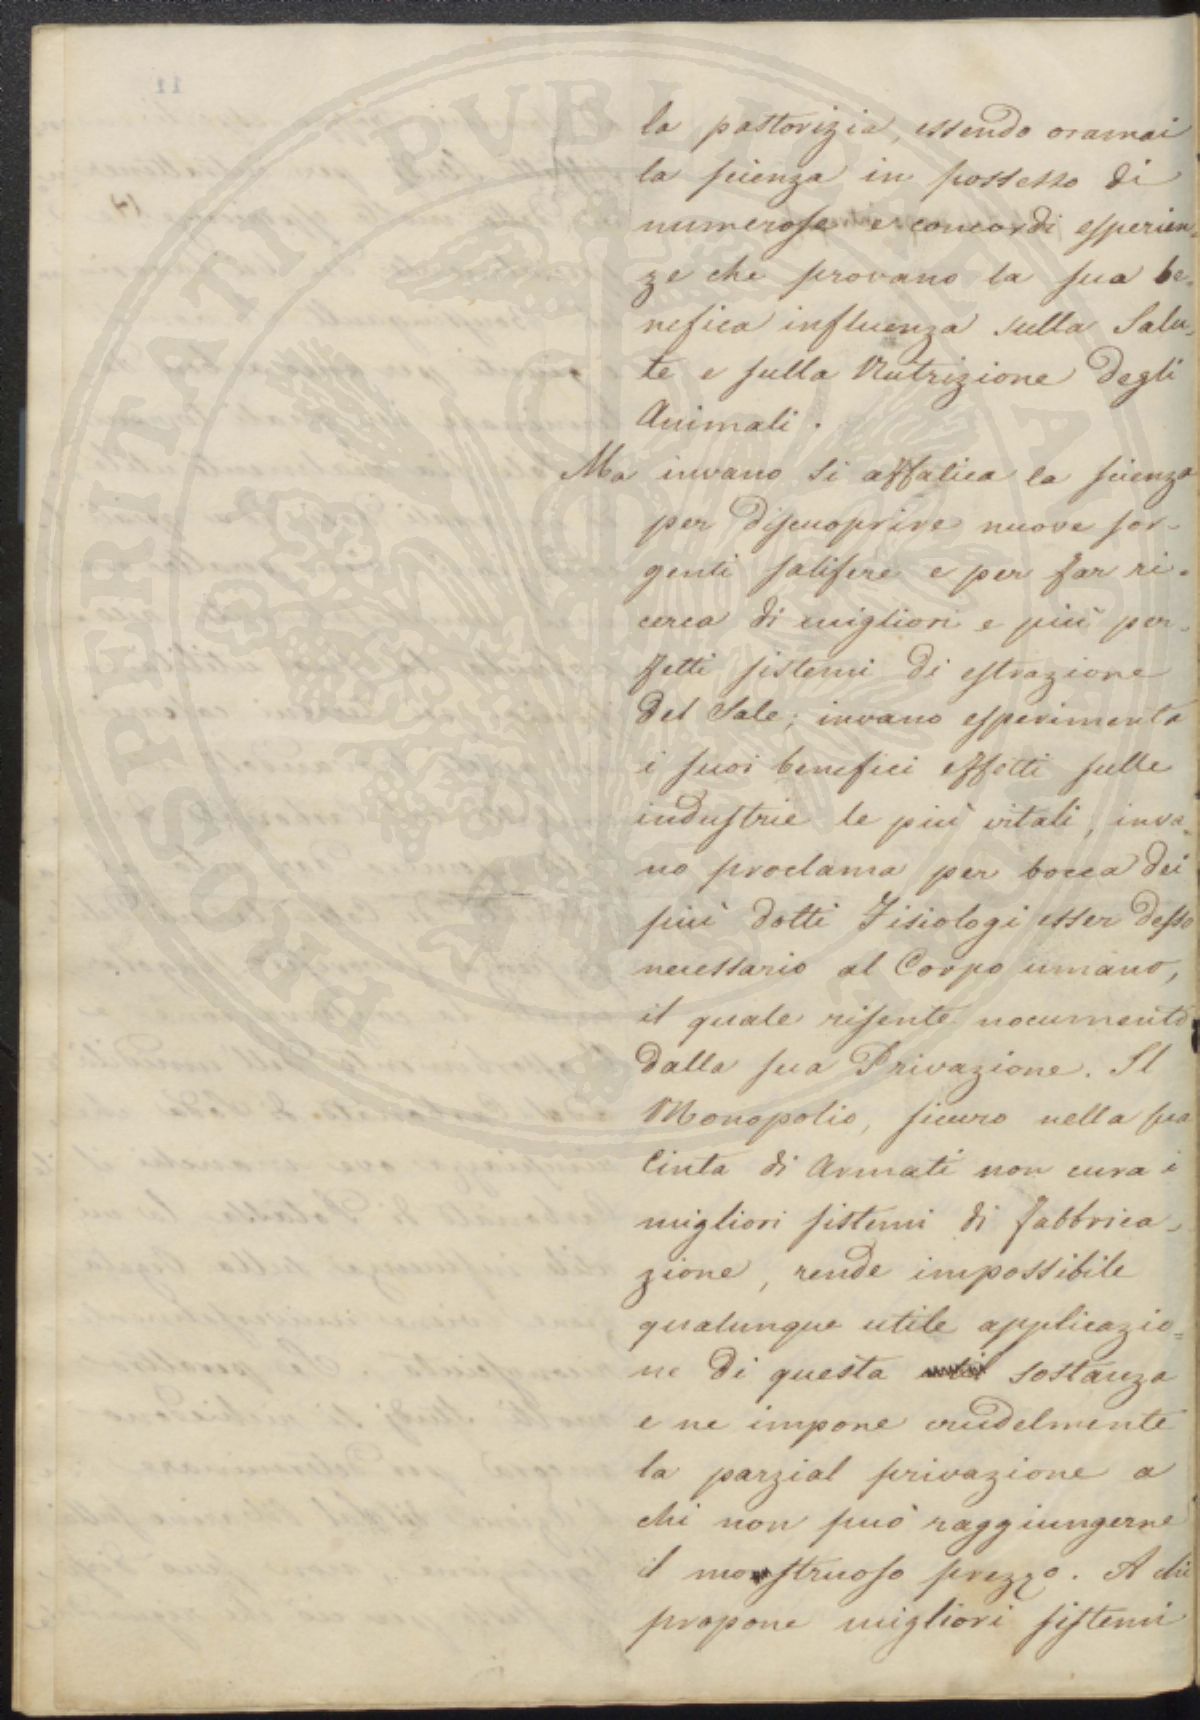 la pastorizia, essendo oramai
la scienza in possesso di
numerose e concordi esperien-
ze che provano la sua be-
nefica influenza sulla Salu-
te e sulla Nutrizione degli
Animali.
Ma invano si affatica la scienza
per discuoprire nuove sor-
genti salifere e per far ri-
cerca di migliori e più per-
fetti sistemi di estrazione
del Sale; invano esperimenta
i suoi benefici effetti sulle
industrie le più vitali, inva-
no proclama per bocca dei
più dotti Fisiologi esser desso
necessario al Corpo umano,
il quale risente nocumento
dalla sua Privazione. Il
Monopolio, sicuro nella sua
Cinta di Armati non cura i
migliori sistemi di fabbrica-
zione, rende impossibile
qualunque utile applicazio-
ne di questa sostanza
e ne impone crudelmente
la parzial privazione a
chi non può raggiungerne
il mostruoso prezzo. A chi
propone migliori sistemi
PROSPERITATI PUBLICAE
11